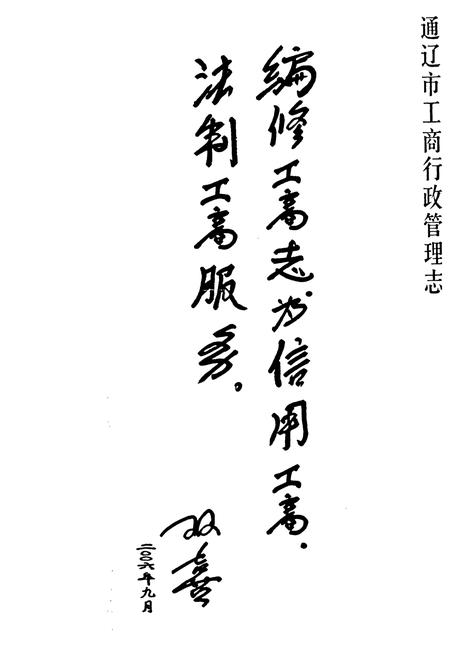 通辽市工商行政管理志
编修工商志为信用工商.
法制工商服务。
双喜
二〇〇六年九月